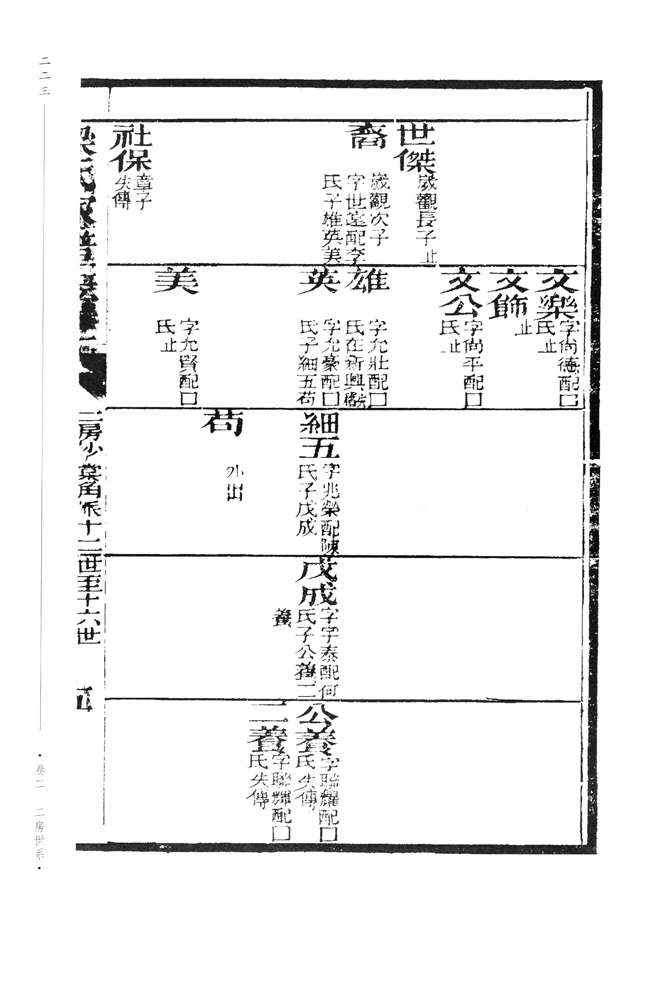 世傑
歲觀長子止
裔
歲觀次子
字世遠配李
氏子雄英美
社保
章子
失傳
文樂
字尚德配囗
氏止
文飾
止
文公
字尚平配囗
氏止
雄
字允壯配囗
氏在新興
英
字允豪配囗
氏子細五茍
美
字允賢配囗
氏止
細五
字兆榮配陳
氏子戊成
茍
外出
戊成
字字泰配何
氏子公養二
養
公養
字聯耀配囗
氏失傳
二養
字聯輝配囗
氏失傳
梁氏家譜
二房沙棠角派十二世至十六世
二二三
·卷二 二房世系·